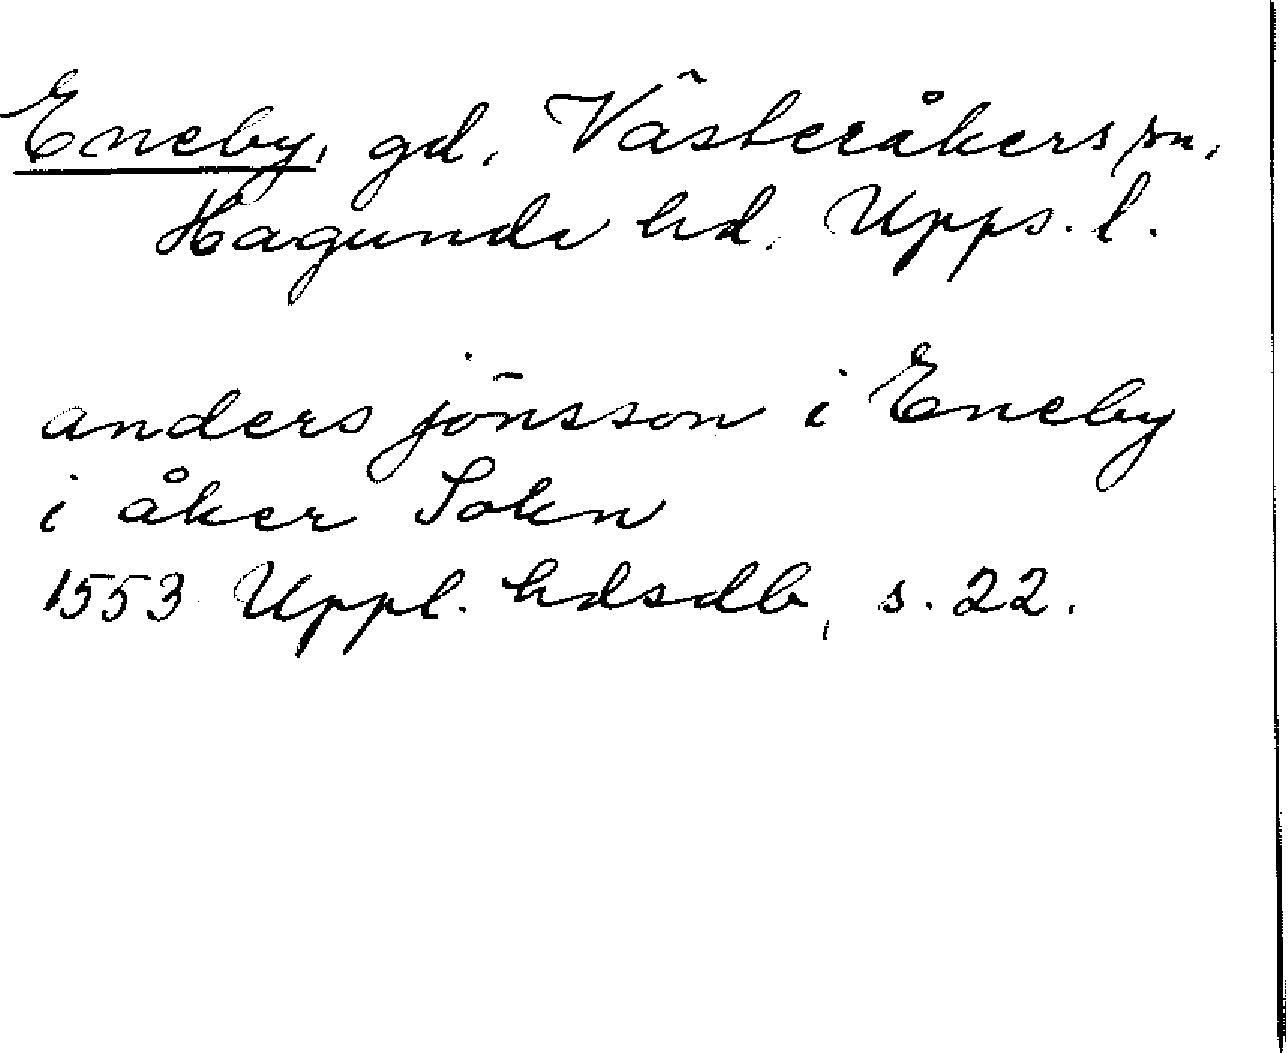 Eneby, gd, Västeråkers sn,
Hagunda hd, Upps. l.
anders jönsson i Eneby
i åker Sokn
1553 Uppl. hdsdb, s. 22.